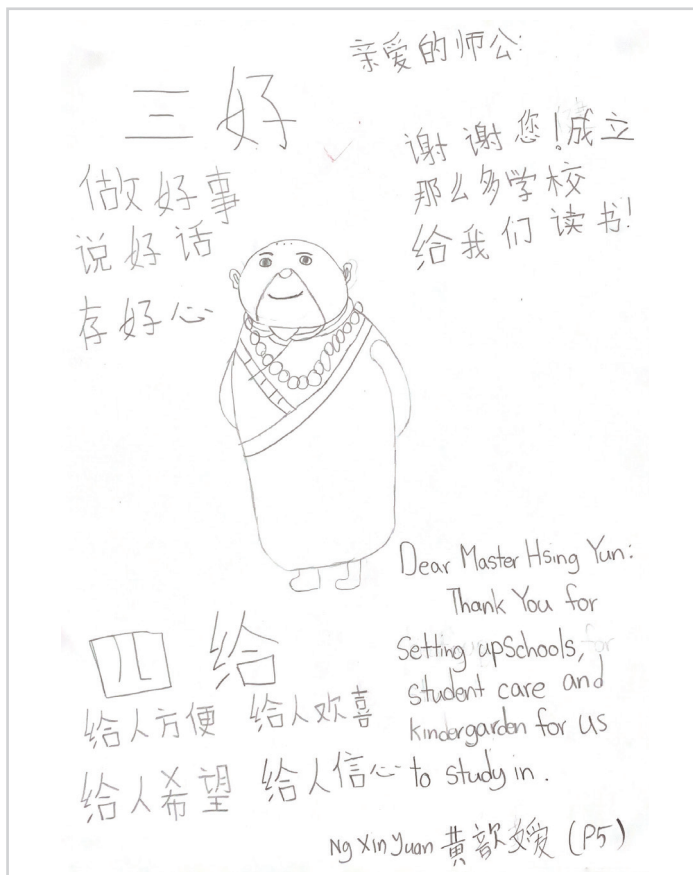 亲爱的师公:
三好
谢谢您!成立
那么多学校
给我们读书!
做好事
说好话
存好心
Dear Master Hsing Yun:
Thank You for
Setting upSchools,
student care and
kindergarden for us
to study in.
四给
给人方便 给人欢喜
给人希望 给人信心
Ng Xin Yuan 黄歆媛 (P5)